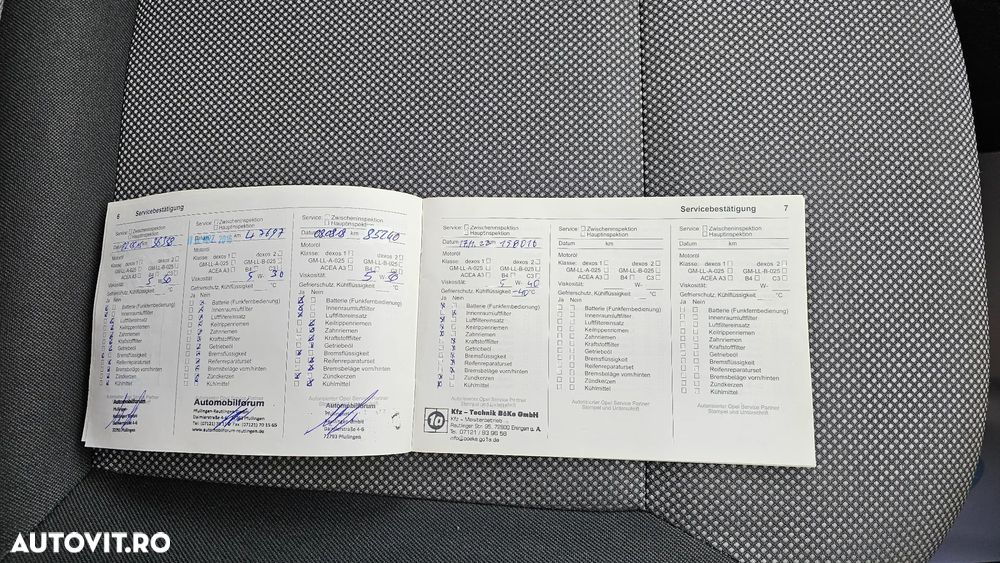 6 Servicebestätigung
Service: Zwischeninspektion
Hauptinspektion
Datum km
Motoröl
Klasse: dexos 1 dexos 2
GM-LL-A-025 GM-LL-B-025
ACEA A3 B4 C3
Viskosität: W-
Ja Nein
Batterie (Funkfernbedienung)
Innenraumluftfilter
Luftfiltereinsatz
Keilrippenriemen
Zahnriemen
Kraftstofffilter
Getriebeöl
Bremsflüssigkeit
Reifenreparaturset
Bremsbeläge vorn/hinten
Zündkerzen
Kühlmittel
Automobilforum
72793 Pfullingen
Service: Zwischeninspektion
Hauptinspektion
km 47697
Motoröl
Klasse: dexos 1 dexos 2
GM-LL-A-025 GM-LL-B-025
ACEA A3 B4 C3
Viskosität: 5 W- 30
Gefrierschutz, Kühlflüssigkeit °C
Ja Nein
Batterie (Funkfernbedienung)
Innenraumluftfilter
Luftfiltereinsatz
Keilrippenriemen
Zahnriemen
Kraftstofffilter
Getriebeöl
Bremsflüssigkeit
Reifenreparaturset
Bremsbeläge vorn/hinten
Zündkerzen
Kühlmittel
Automobilforum
Pfullingen-Reutlingen
www.automobilforum-reutlingen.de
Service: Zwischeninspektion
Hauptinspektion
Datum km 85240
Motoröl
Klasse: dexos 1 dexos 2
GM-LL-A-025 GM-LL-B-025
ACEA A3 B4 C3
Viskosität: 5 W-
Gefrierschutz, Kühlflüssigkeit °C
Ja Nein
Batterie (Funkfernbedienung)
Innenraumluftfilter
Luftfiltereinsatz
Keilrippenriemen
Zahnriemen
Kraftstofffilter
Getriebeöl
Bremsflüssigkeit
Reifenreparaturset
Bremsbeläge vorn/hinten
Zündkerzen
Kühlmittel
Automobilforum
72793 Pfullingen
Servicebestätigung 7
Service: Zwischeninspektion
Hauptinspektion
Datum km 198010
Motoröl
Klasse: dexos 1 dexos 2
GM-LL-A-025 GM-LL-B-025
ACEA A3 B4 C3
Viskosität: 5 W- 40
Gefrierschutz, Kühlflüssigkeit -40 °C
Ja Nein
Batterie (Funkfernbedienung)
Innenraumluftfilter
Luftfiltereinsatz
Keilrippenriemen
Zahnriemen
Kraftstofffilter
Getriebeöl
Bremsflüssigkeit
Reifenreparaturset
Bremsbeläge vorn/hinten
Zündkerzen
Kühlmittel
Autorisierter Opel Service Partner
Stempel und Unterschrift
Kfz - Technik BöKo GmbH
Kfz - Meisterbetrieb
Tel. 07121 / 93 96 58
Service: Zwischeninspektion
Hauptinspektion
Datum km
Motoröl
Klasse: dexos 1 dexos 2
GM-LL-A-025 GM-LL-B-025
ACEA A3 B4 C3
Viskosität: W-
Gefrierschutz, Kühlflüssigkeit °C
Ja Nein
Batterie (Funkfernbedienung)
Innenraumluftfilter
Luftfiltereinsatz
Keilrippenriemen
Zahnriemen
Kraftstofffilter
Getriebeöl
Bremsflüssigkeit
Reifenreparaturset
Bremsbeläge vorn/hinten
Zündkerzen
Kühlmittel
Autorisierter Opel Service Partner
Stempel und Unterschrift
Service: Zwischeninspektion
Hauptinspektion
Datum km
Motoröl
Klasse: dexos 1 dexos 2
GM-LL-A-025 GM-LL-B-025
ACEA A3 B4 C3
Viskosität: W-
Gefrierschutz, Kühlflüssigkeit °C
Ja Nein
Batterie (Funkfernbedienung)
Innenraumluftfilter
Luftfiltereinsatz
Keilrippenriemen
Zahnriemen
Kraftstofffilter
Getriebeöl
Bremsflüssigkeit
Reifenreparaturset
Bremsbeläge vorn/hinten
Zündkerzen
Kühlmittel
Autorisierter Opel Service Partner
Stempel und Unterschrift
AUTOVIT.RO